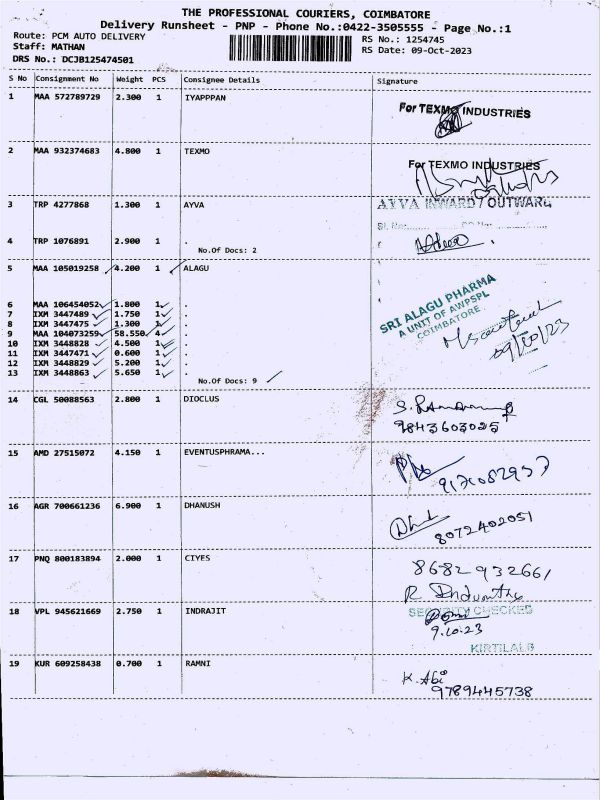 THE PROFESSIONAL COURIERS, COIMBATORE
Delivery Runsheet - PNP - Phone No.:0422-3505555 - Page No.:1
Route: PCM AUTO DELIVERY
RS No.: 1254745
Staff: MATHAN
RS Date: 09-Oct-2023
DRS No.: DCJB125474501
S No Consignment No Weight PCS Consignee Details Signature
1 MAA 572789729 2.300 1 IYAPPPAN
For TEXMO INDUSTRIES
2 MAA 932374683 4.800 1 TEXMO
For TEXMO INDUSTRIES
3 TRP 4277868 1.300 1 AYVA
AYVA INWARD / OUTWARD
4 TRP 1076891 2.900 1 .
No.Of Docs: 2
5 MAA 105019258 4.200 1 ALAGU
SRI ALAGU PHARMA
A UNIT OF AWPSPL
COIMBATORE
09/10/23
6 MAA 106454052 1.800 1 .
7 IXM 3447489 1.750 1 .
8 IXM 3447475 1.300 1 .
9 MAA 104073259 58.550 4 .
10 IXM 3448828 4.500 1 .
11 IXM 3447471 0.600 1 .
12 IXM 3448829 5.200 1 .
13 IXM 3448863 5.650 1 .
No.Of Docs: 9
14 CGL 50088563 2.800 1 DIOCLUS
9843603025
15 AMD 27515072 4.150 1 EVENTUSPHRAMA...
16 AGR 700661236 6.900 1 DHANUSH
8072402051
17 PNQ 800183894 2.000 1 CIYES
8682932661
18 VPL 945621669 2.750 1 INDRAJIT
SECURITY CHECKED
9.10.23
KIRTILALS
19 KUR 609258438 0.700 1 RAMNI
K. Abi
9789445738